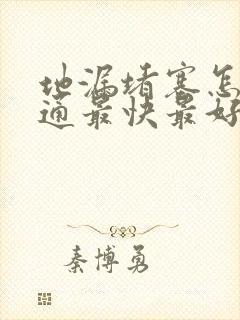 地漏堵塞怎
通最快最好
秦博勇